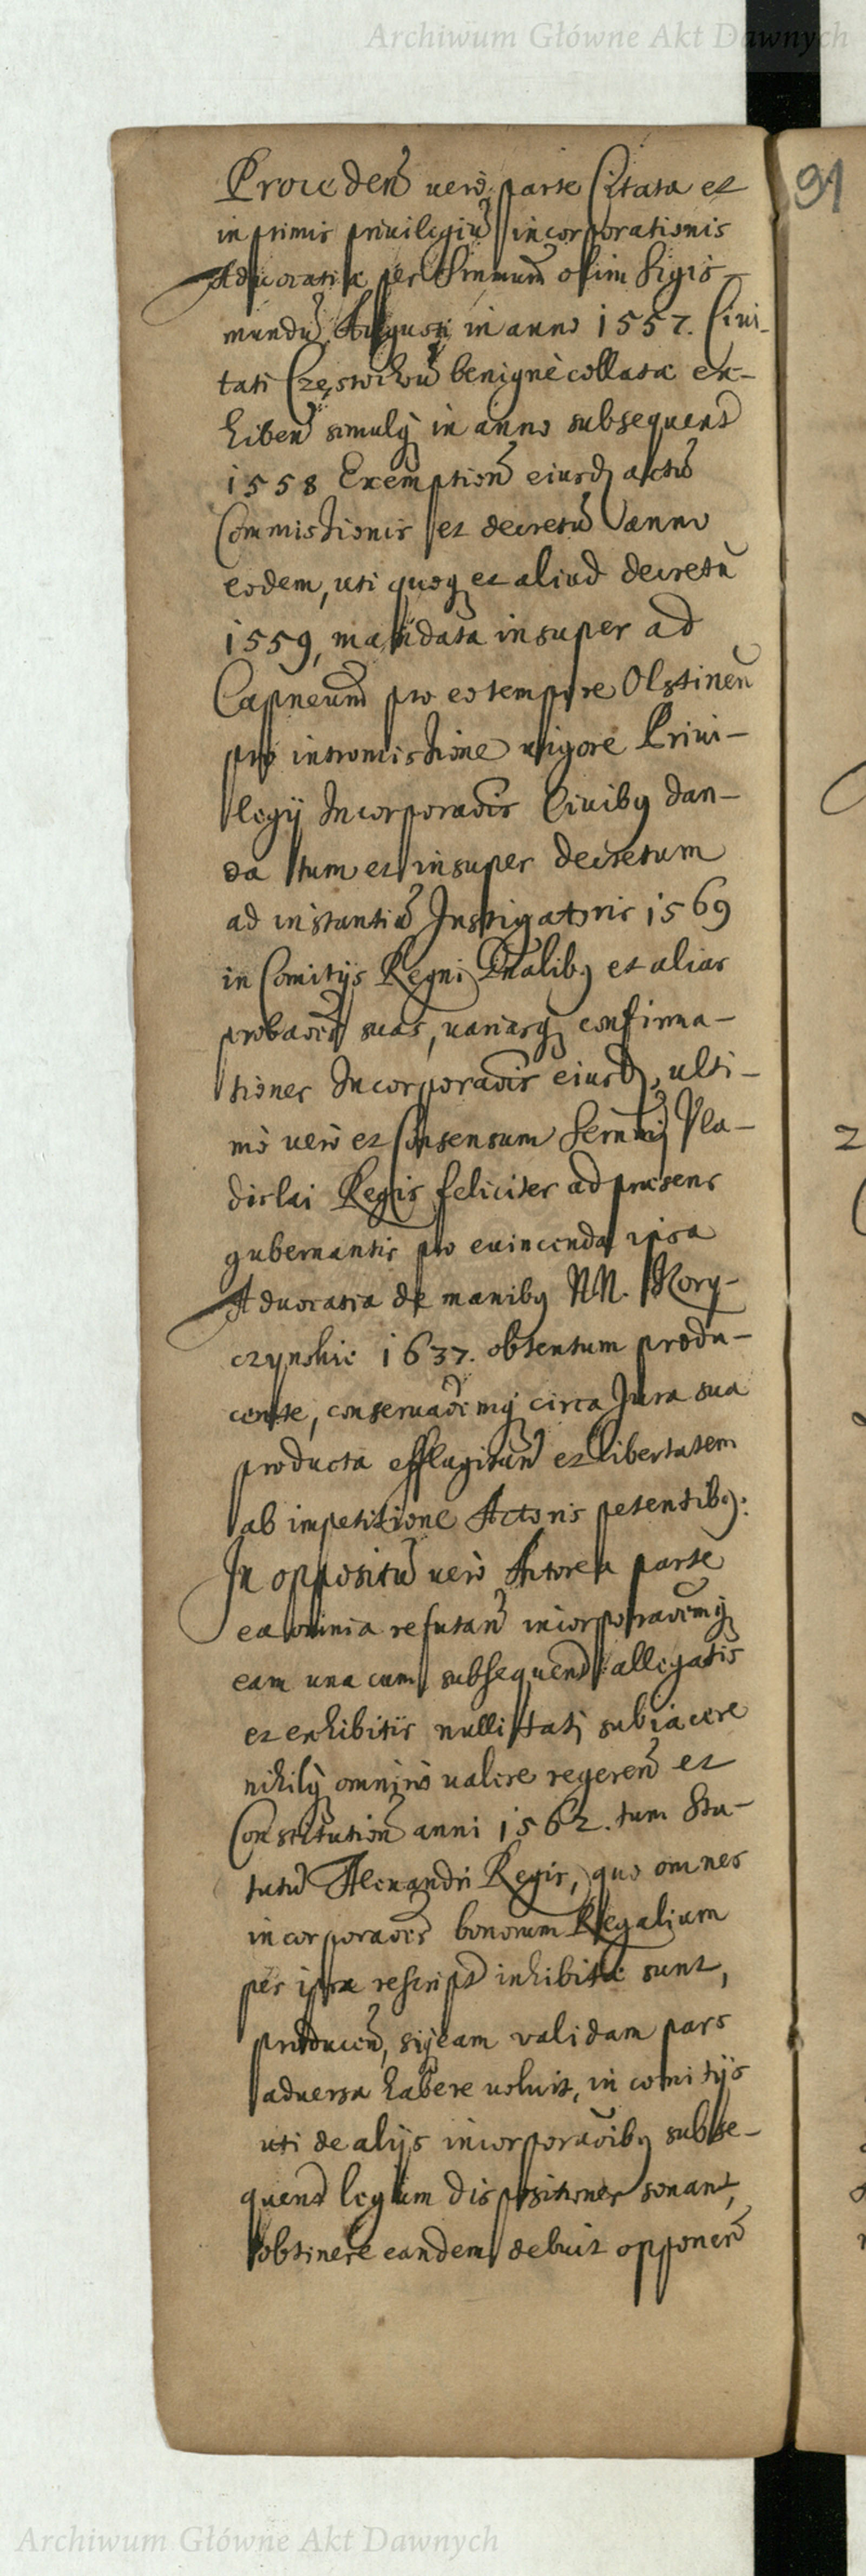 Archiwum Główne Akt Dawnych
91
Proceden̄ vero parte Citata et
inprimis priuilegiū incorporationis
Aduocatiæ per Sermum̄ olim Sigis-
mundū Augusti in anno 1557. Ciui-
tati Częstochouˉ benignè collata ex-
hiben̄ simulq̨ in anno subsequent̄
1558 Exemption̄ eiusd̨ actū
Commissionis et decretū anno
eodem, uti quoq̨ et aliud decretū
1559, mandata insuper ad
Capneum̄ pro eo tempore Olstinen̄
pro intromissione vigore Priui-
legij Incorporaōis Ciuibq̨ dan-
da tum et insuper decretum
ad instantiā Instigatoris 1569
in Comitijs Regni Gn̄alibq̨ et alias
probaōes suas, variasq̨ confirma-
tiones Incorporaōis eiusd̨, ulti-
mò verò et Consensum Sernm̄j Vla-
dislai Regis feliciter ad præsens
gubernantis pro euincenda ipsa
Aduocatia de manibq̨ NN. Kory-
czynskie 1637. obtentum produ-
cente, conseruaōemq̨ circa Jura sua
producta efflagitan̄ et libertatem
ab impetitione Actoris petentibq̨:
In oppositū verò Actorea parte
ea omnia refutan̄ incorporaōemq̨
eam una cum subsequent̄ allegatis
et exhibitis nullitati subiacere
nihilq̨ omninò valere regeren̄ et
Constitution̄ anni 1562. tum Sta-
tutū Alexandri Regis, quo omnes
incorporaōes bonorum Regalium
per ipsa rescript̄ inhibitæ sunt,
producen̄, si jeam validam pars
aduersa habere voluit, in comitijs
uti de alijs incorporaōibq̨ subse-
quent̄ legum dispositiones sonant,
obtinere eandem debuit opponen̄
Archiwum Główne Akt Dawnych